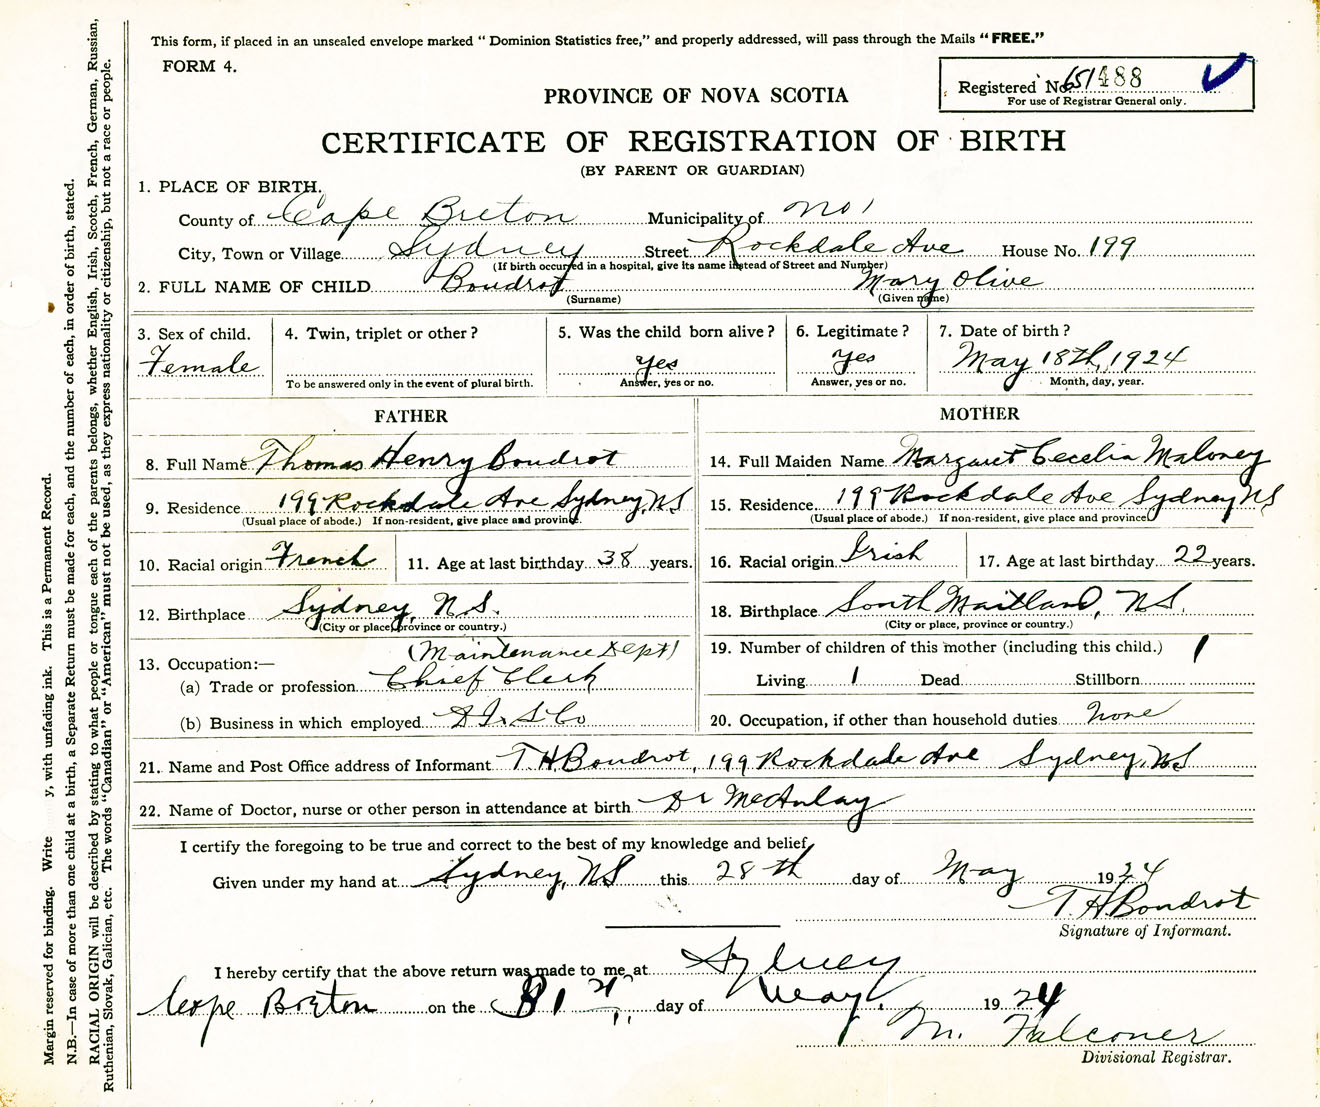 This form, if placed in an unsealed envelope marked " Dominion Statistics free," and properly addressed, will pass through the Mails " FREE."
FORM 4.
Registered No. 651488
For use of Registrar General only.
PROVINCE OF NOVA SCOTIA
CERTIFICATE OF REGISTRATION OF BIRTH
(BY PARENT OR GUARDIAN)
1. PLACE OF BIRTH.
County of Cape Breton Municipality of No 1
City, Town or Village Sydney Street Rockdale Ave House No. 199
(If birth occurred in a hospital, give its name instead of Street and Number)
2. FULL NAME OF CHILD Boudrot Mary Olive
(Surname) (Given name)
3. Sex of child. 4. Twin, triplet or other ? 5. Was the child born alive ? 6. Legitimate ? 7. Date of birth ?
Female Yes Yes May 18th, 1924
To be answered only in the event of plural birth. Answer, yes or no. Answer, yes or no. Month, day, year.
FATHER MOTHER
8. Full Name Thomas Henry Boudrot 14. Full Maiden Name Margaret Cecelia Maloney
9. Residence 199 Rockdale Ave Sydney, NS 15. Residence 199 Rockdale Ave Sydney NS
(Usual place of abode.) If non-resident, give place and province. (Usual place of abode.) If non-resident, give place and province
10. Racial origin French 11. Age at last birthday 38 years. 16. Racial origin Irish 17. Age at last birthday 22 years.
12. Birthplace Sydney, N.S. 18. Birthplace South Maitland, NS.
(City or place, province or country.) (City or place, province or country.)
13. Occupation:— (Maintenance Dept) 19. Number of children of this mother (including this child.) 1
(a) Trade or profession Chief Clerk Living 1 Dead Stillborn
(b) Business in which employed D.I. S Co 20. Occupation, if other than household duties None
21. Name and Post Office address of Informant T.H. Boudrot, 199 Rockdale Ave Sydney, NS
22. Name of Doctor, nurse or other person in attendance at birth Dr McAulay
I certify the foregoing to be true and correct to the best of my knowledge and belief,
Given under my hand at Sydney, NS this 28th day of May 1924
T.H. Boudrot
Signature of Informant.
I hereby certify that the above return was made to me at Sydney
Cape Breton on the 31st day of May 1924
M. Falconer
Divisional Registrar.
Margin reserved for binding. Write y, with unfading ink. This is a Permanent Record.
N.B.—In case of more than one child at a birth, a Separate Return must be made for each, and the number of each, in order of birth, stated.
RACIAL ORIGIN will be described by stating to what people or tongue each of the parents belongs, whether English, Irish, Scotch, French, German, Russian,
Ruthenian, Slovak, Galician, etc. The words "Canadian" or "American" must not be used, as they express nationality or citizenship, but not a race or people.